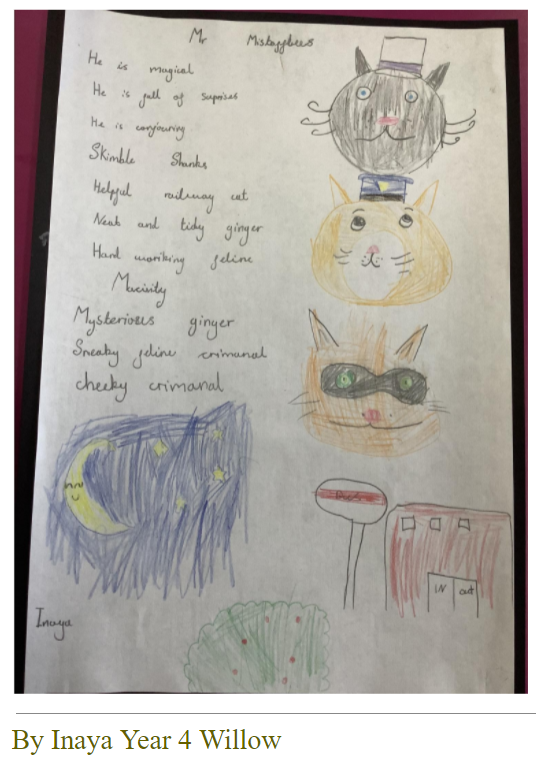 Mr Mistoffelees
He is magical
He is full of suprises
He is conjouring
Skimble Shanks
Helpful railway cat
Neat and tidy ginger
Hard working feline
Macivity
Mysterious ginger
Sneaky feline crimanal
cheeky crimanal
IN out
Inaya
By Inaya Year 4 Willow